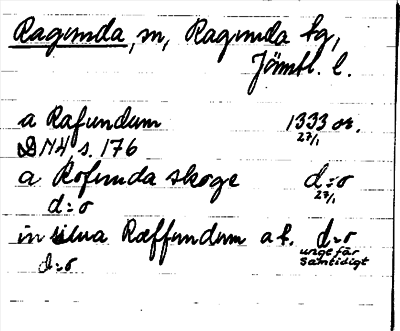 Ragunda, sn, Ragunda tg,
Jämtl. l.
a Rafundum 1333 or.
27/1
DN4, s. 176
a Rofunda skoge d:o
27/1
d:o
in silua Ræffundum a f. d:o
ungefär
samtidigt
d:o